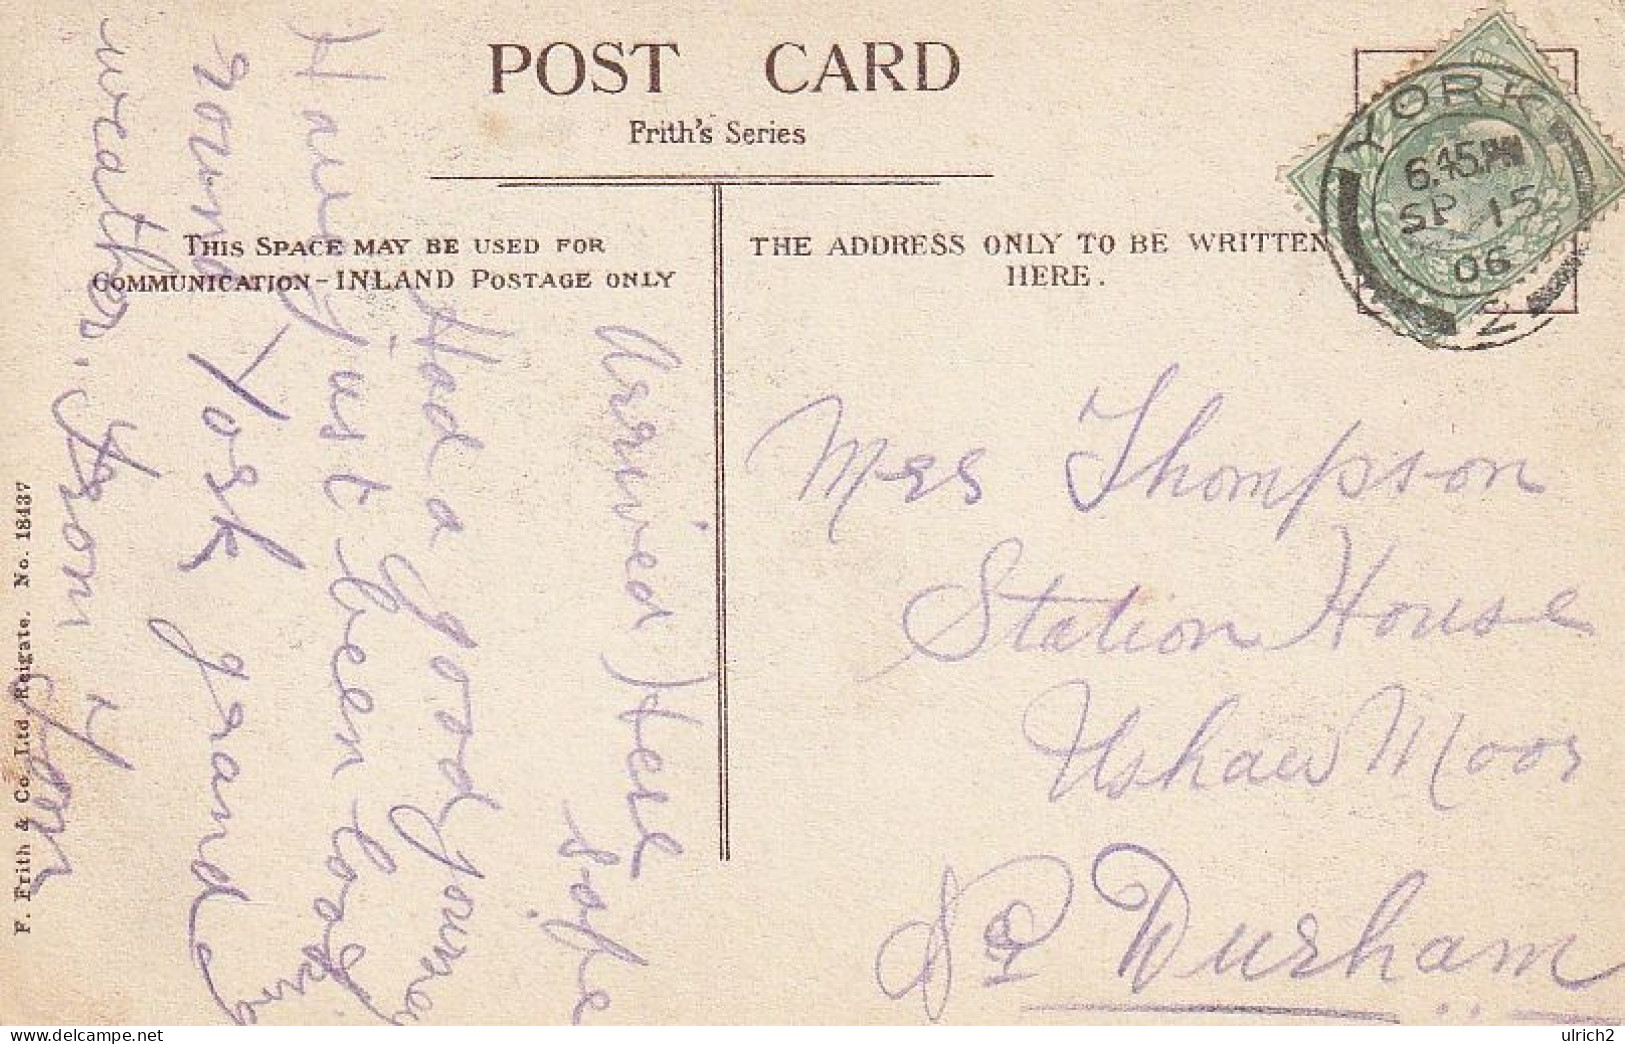 POST CARD
Frith's Series
THIS SPACE MAY BE USED FOR
COMMUNICATION - INLAND POSTAGE ONLY
THE ADDRESS ONLY TO BE WRITTEN
HERE.
YORK
6.45 PM
SP 15
06
Arrived Here safe
Had a good journey
Have just been looking
round York grand
weather. From
Mrs Thompson
Station House
Ushaw Moor
Durham
F. Frith & Co. Ltd. Reigate. No. 18437
ulrich2